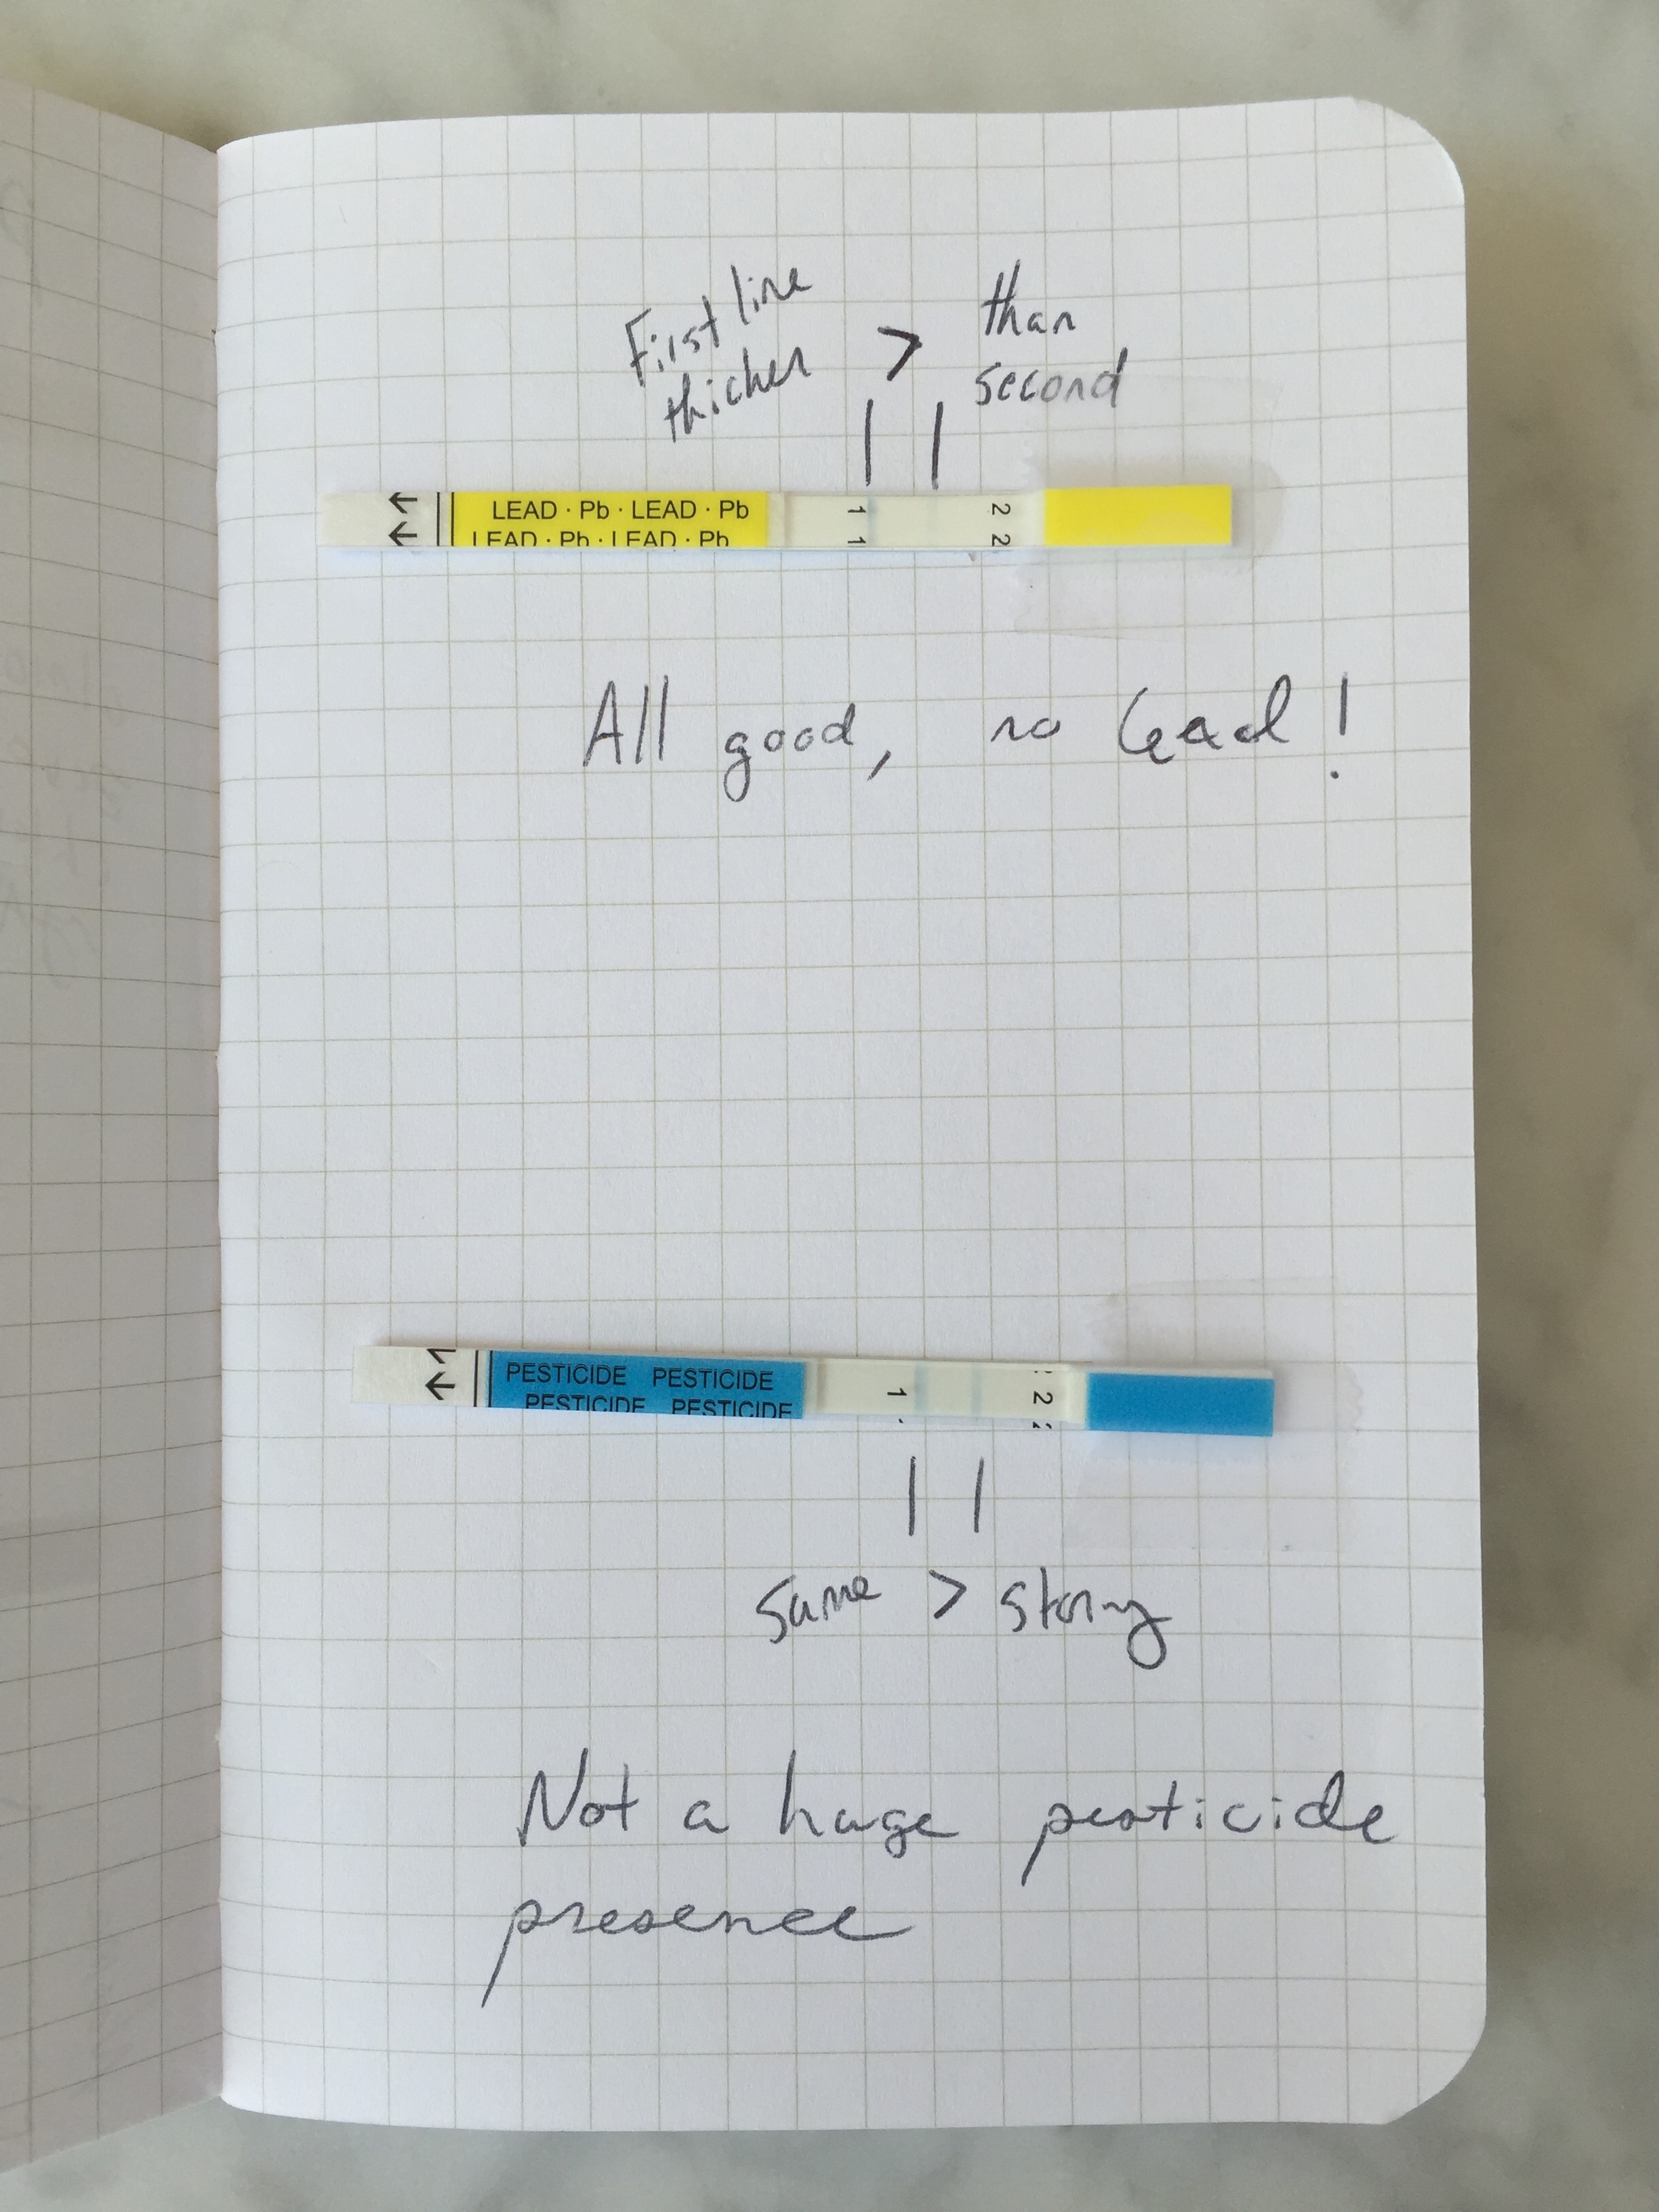 First line
thicker
>
than
second
LEAD · Pb · LEAD · Pb
LEAD · Pb · LEAD · Pb
1 2
1 2
All good, no lead!
PESTICIDE PESTICIDE
PESTICIDE PESTICIDE
1 2
same > story
Not a huge pesticide
presence